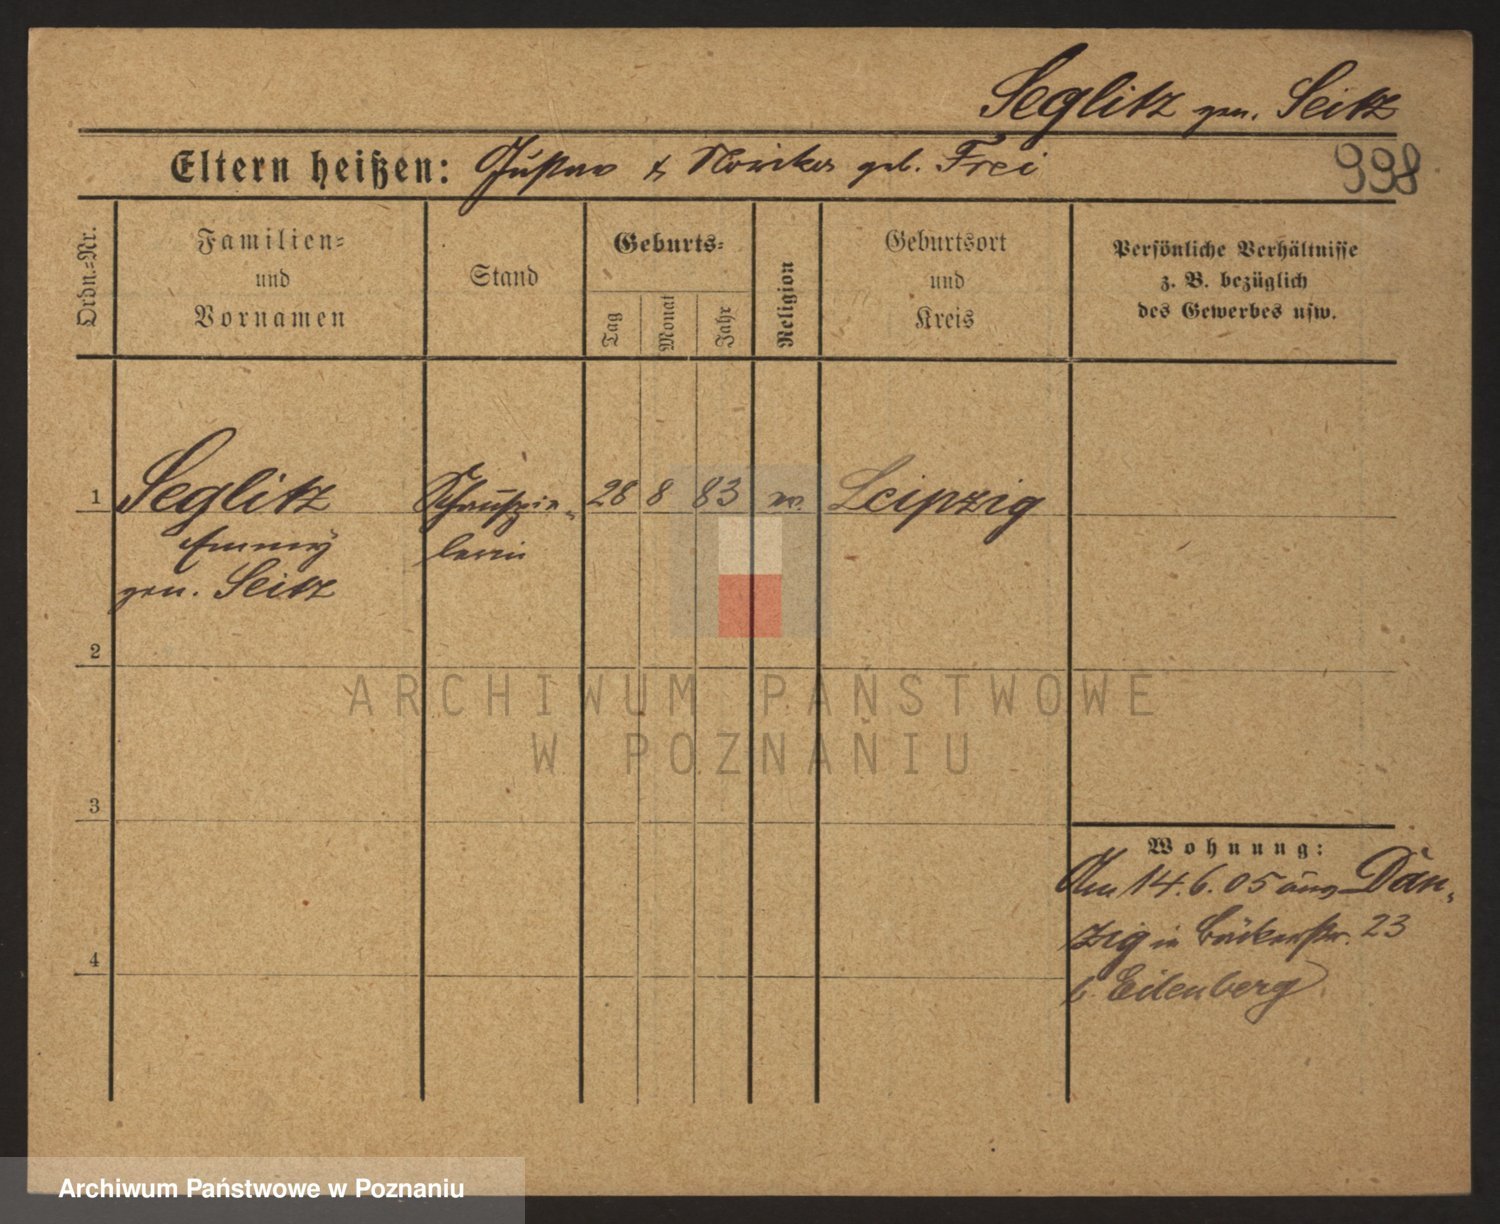 Seglitz gen. Seitz
Eltern heißen: Gustav & geb. Frei
998
Ordn.=Nr.
Familien=
und
Vornamen
Stand
Geburts=
Tag
Monat
Jahr
Religion
Geburtsort
und
Kreis
Persönliche Verhältnisse
z. B. bezüglich
des Gewerbes usw.
1 Seglitz Schauspie- 28 8 83 Leipzig
Emmy lerin
gen. Seitz
2
ARCHIWUM PAŃSTWOWE
W POZNANIU
3
Wohnung:
Am 14. 6. 05 Dan-
zig in Bäckerstr. 23
b. Eilenberg
4
Archiwum Państwowe w Poznaniu